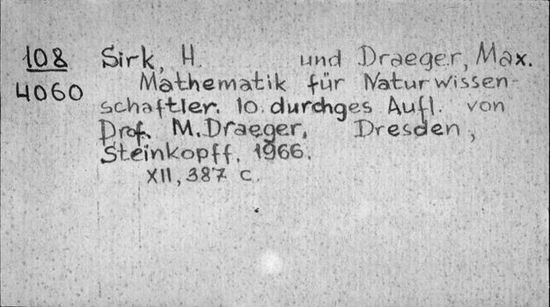 108 Sirk, H. und Draeger, Max.
4060 Mathematik für Naturwissen-
schaftler. 10. durchges Aufl. von
Prof. M. Draeger, Dresden,
Steinkopff, 1966.
XII, 387 c.